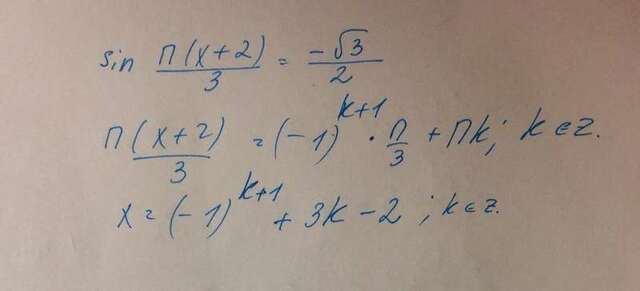 sin π(x+2)/3 = -√3/2
π(x+2)/3 = (-1)^k+1 · π/3 + πk; k ∈ z.
x = (-1)^k+1 + 3k - 2 ; k ∈ z.